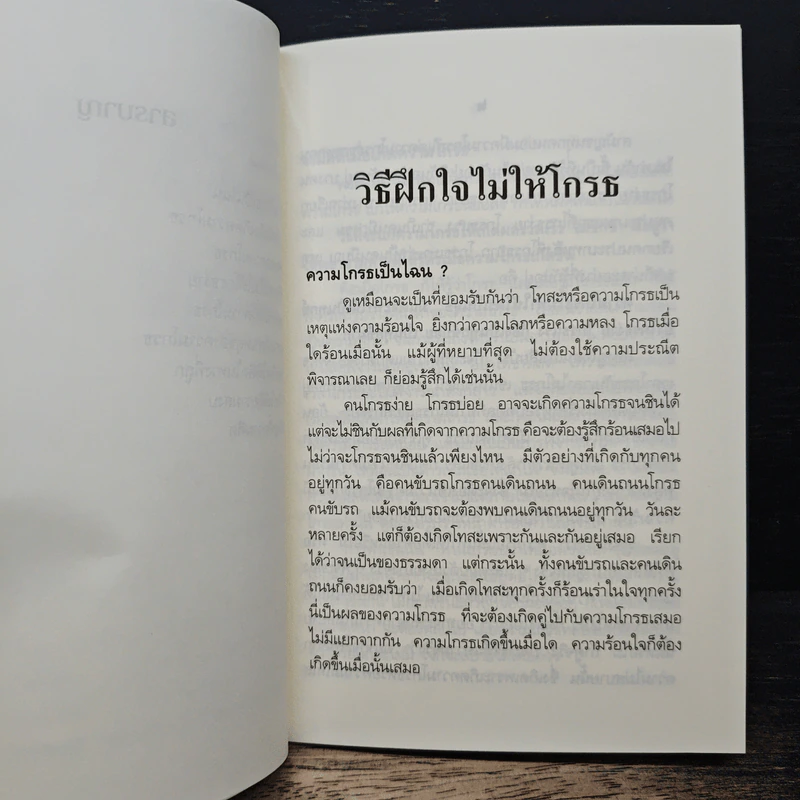 วิธีฝึกใจไม่ให้โกรธ
ความโกรธเป็นไฉน ?
ดูเหมือนจะเป็นที่ยอมรับกันว่า โทสะหรือความโกรธเป็น
เหตุแห่งความร้อนใจ ยิ่งกว่าความโลภหรือความหลง โกรธเมื่อ
ใดร้อนเมื่อนั้น แม้ผู้ที่หยาบที่สุด ไม่ต้องใช้ความประณีต
พิจารณาเลย ก็ย่อมรู้สึกได้เช่นนั้น
คนโกรธง่าย โกรธบ่อย อาจจะเกิดความโกรธจนชินได้
แต่จะไม่ชินกับผลที่เกิดจากความโกรธ คือจะต้องรู้สึกร้อนเสมอไป
ไม่ว่าจะโกรธจนชินแล้วเพียงไหน มีตัวอย่างที่เกิดกับทุกคน
อยู่ทุกวัน คือคนขับรถโกรธคนเดินถนน คนเดินถนนโกรธ
คนขับรถ แม้คนขับรถจะต้องพบคนเดินถนนอยู่ทุกวัน วันละ
หลายครั้ง แต่ก็ต้องเกิดโทสะเพราะกันและกันอยู่เสมอ เรียก
ได้ว่าจนเป็นของธรรมดา แต่กระนั้น ทั้งคนขับรถและคนเดิน
ถนนก็คงยอมรับว่า เมื่อเกิดโทสะทุกครั้งก็ร้อนเร่าในใจทุกครั้ง
นี่เป็นผลของความโกรธ ที่จะต้องเกิดคู่ไปกับความโกรธเสมอ
ไม่มีแยกจากกัน ความโกรธเกิดขึ้นเมื่อใด ความร้อนใจก็ต้อง
เกิดขึ้นเมื่อนั้นเสมอ